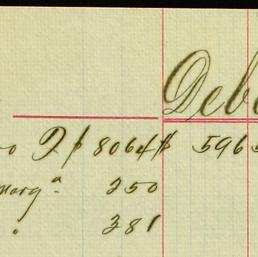 Debe
oo 2 $ 8064 $ 5965
marg.a 250
" 381